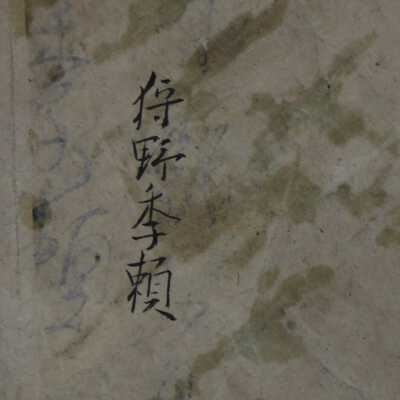 狩野季頼